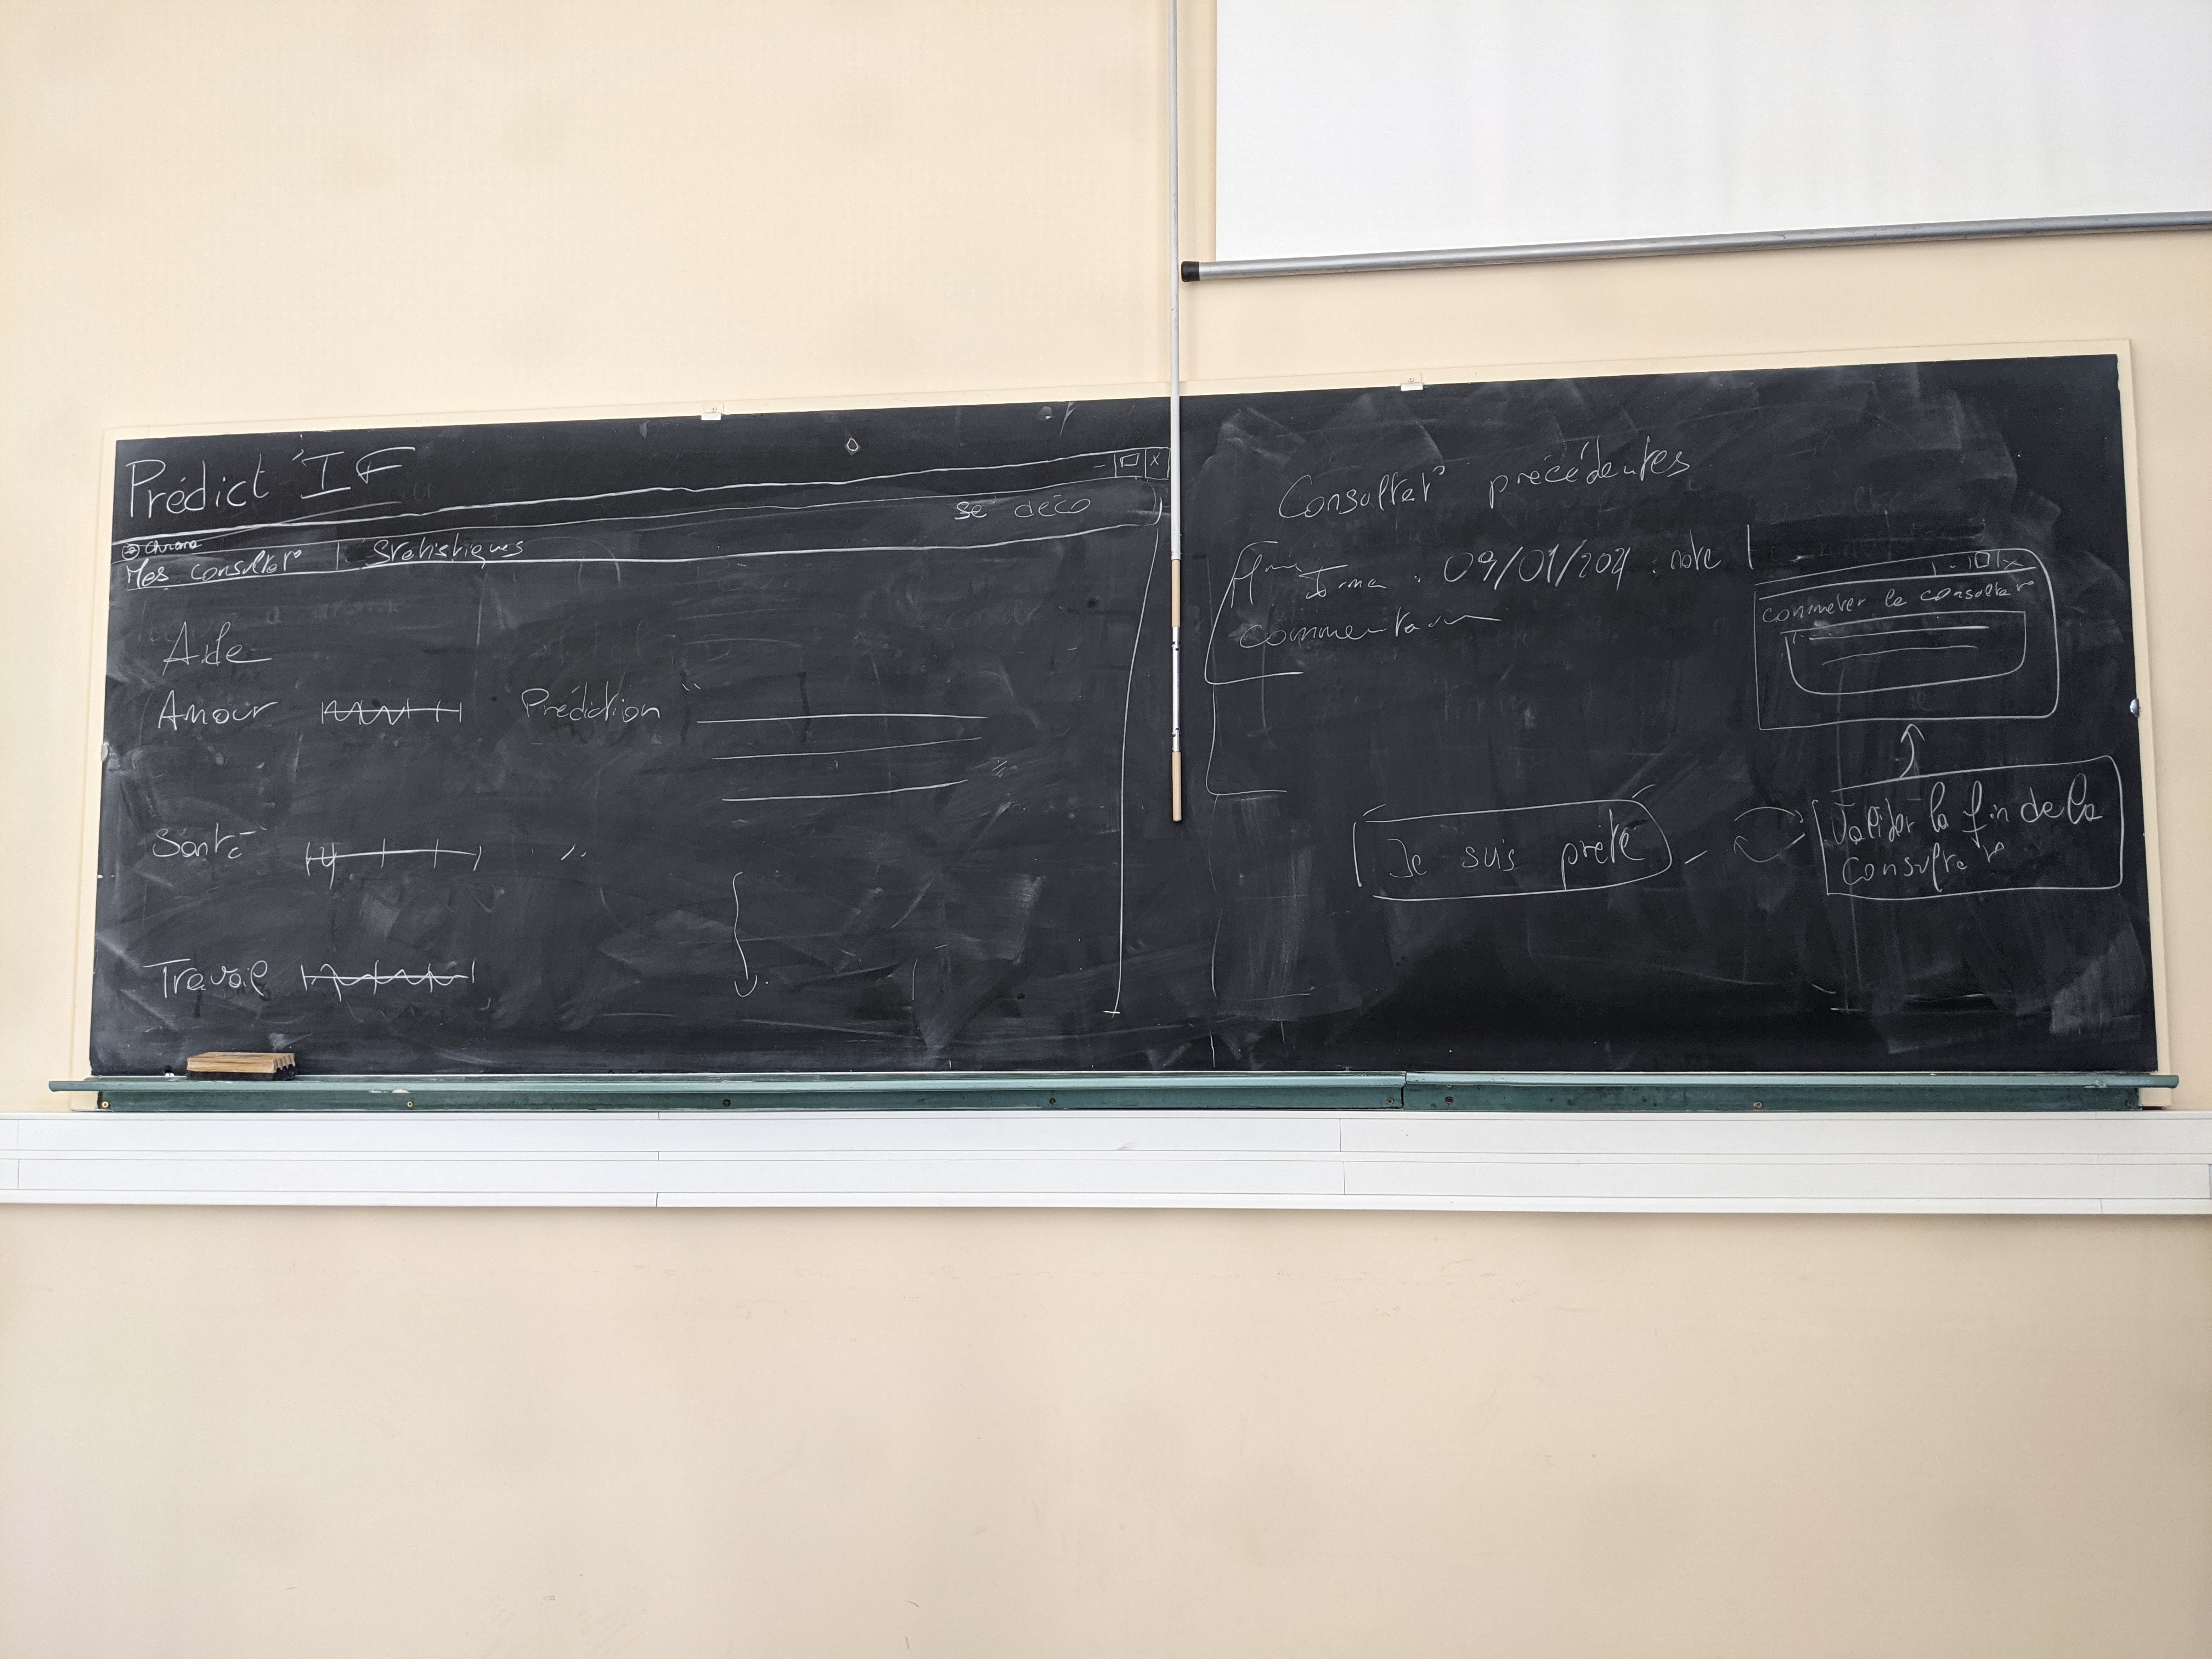 Prédict'IF
se déco
Chrono
Mes consultat° | Statistiques
Aide
Amour Prédiction "
Santé
Travail
Consultat° précédentes
Irma : 09/01/2021 : note
commentaire
commenter la consultat°
Je suis prête
Valider la fin de la
consultat°